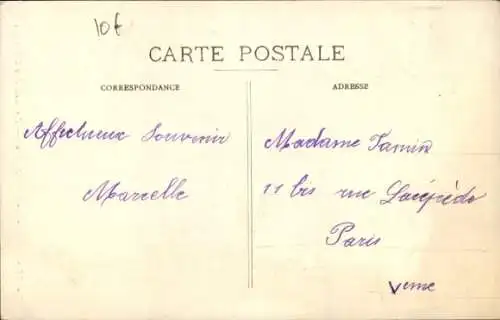 10f
CARTE POSTALE
CORRESPONDANCE
ADRESSE
Affectueux Souvenir
Marcelle
Madame Tamin
11 bis rue Lacépède
Paris
Veme